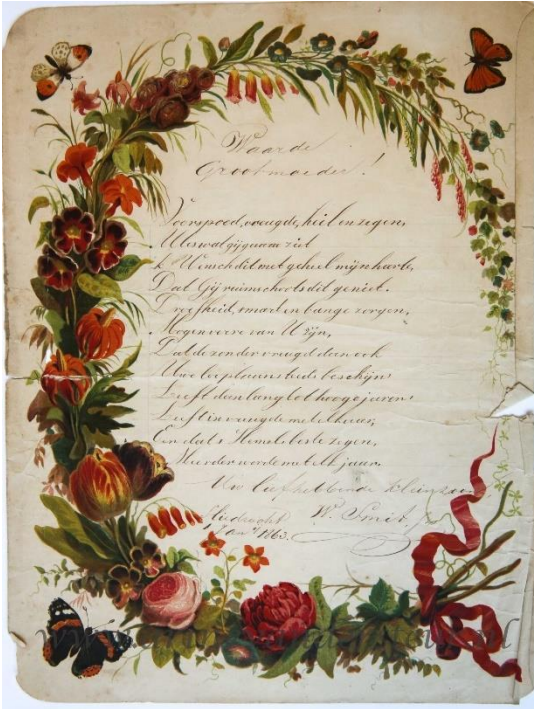 Waarde
Grootmoeder!
Voorspoed, vreugde, heil en zegen,
Alles wat gij gaarne ziet
k Wensch dit met geheel mijn harte,
Dat Gij ruimschoots dit geniet.
Droefheid, smart en bange zorgen,
Mogen verre van U zijn,
Dat de zon der vreugd dan ook
Uwe loopbaan steeds beschijn
Leeft dan lang tot hooge jaren
Leeft in vreugde met elkaar,
En dat 's Hemels beste zegen,
Meerder worde met elk jaar.
Uw liefhebbende kleinzoon
Sliedrecht W. Smit.
1 Jany 1863.